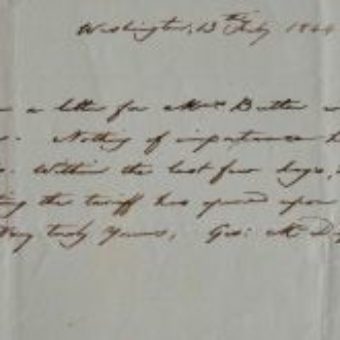 Washington, 13th July 1844
a letter for Mrs Butler
Nothing of importance
Within the last few days,
the tariff has upon
Very truly Yours, Geo: McD